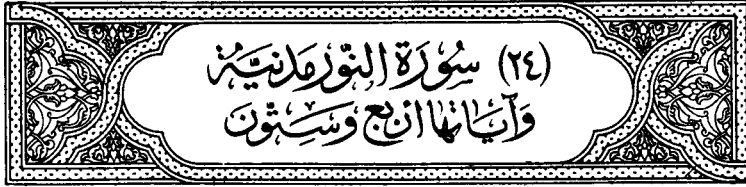 (٢٤) سُورَةِ النُّورْ مَدَنيَّة
وَآيَاتهَا أرْبَع وَسِتّونَ